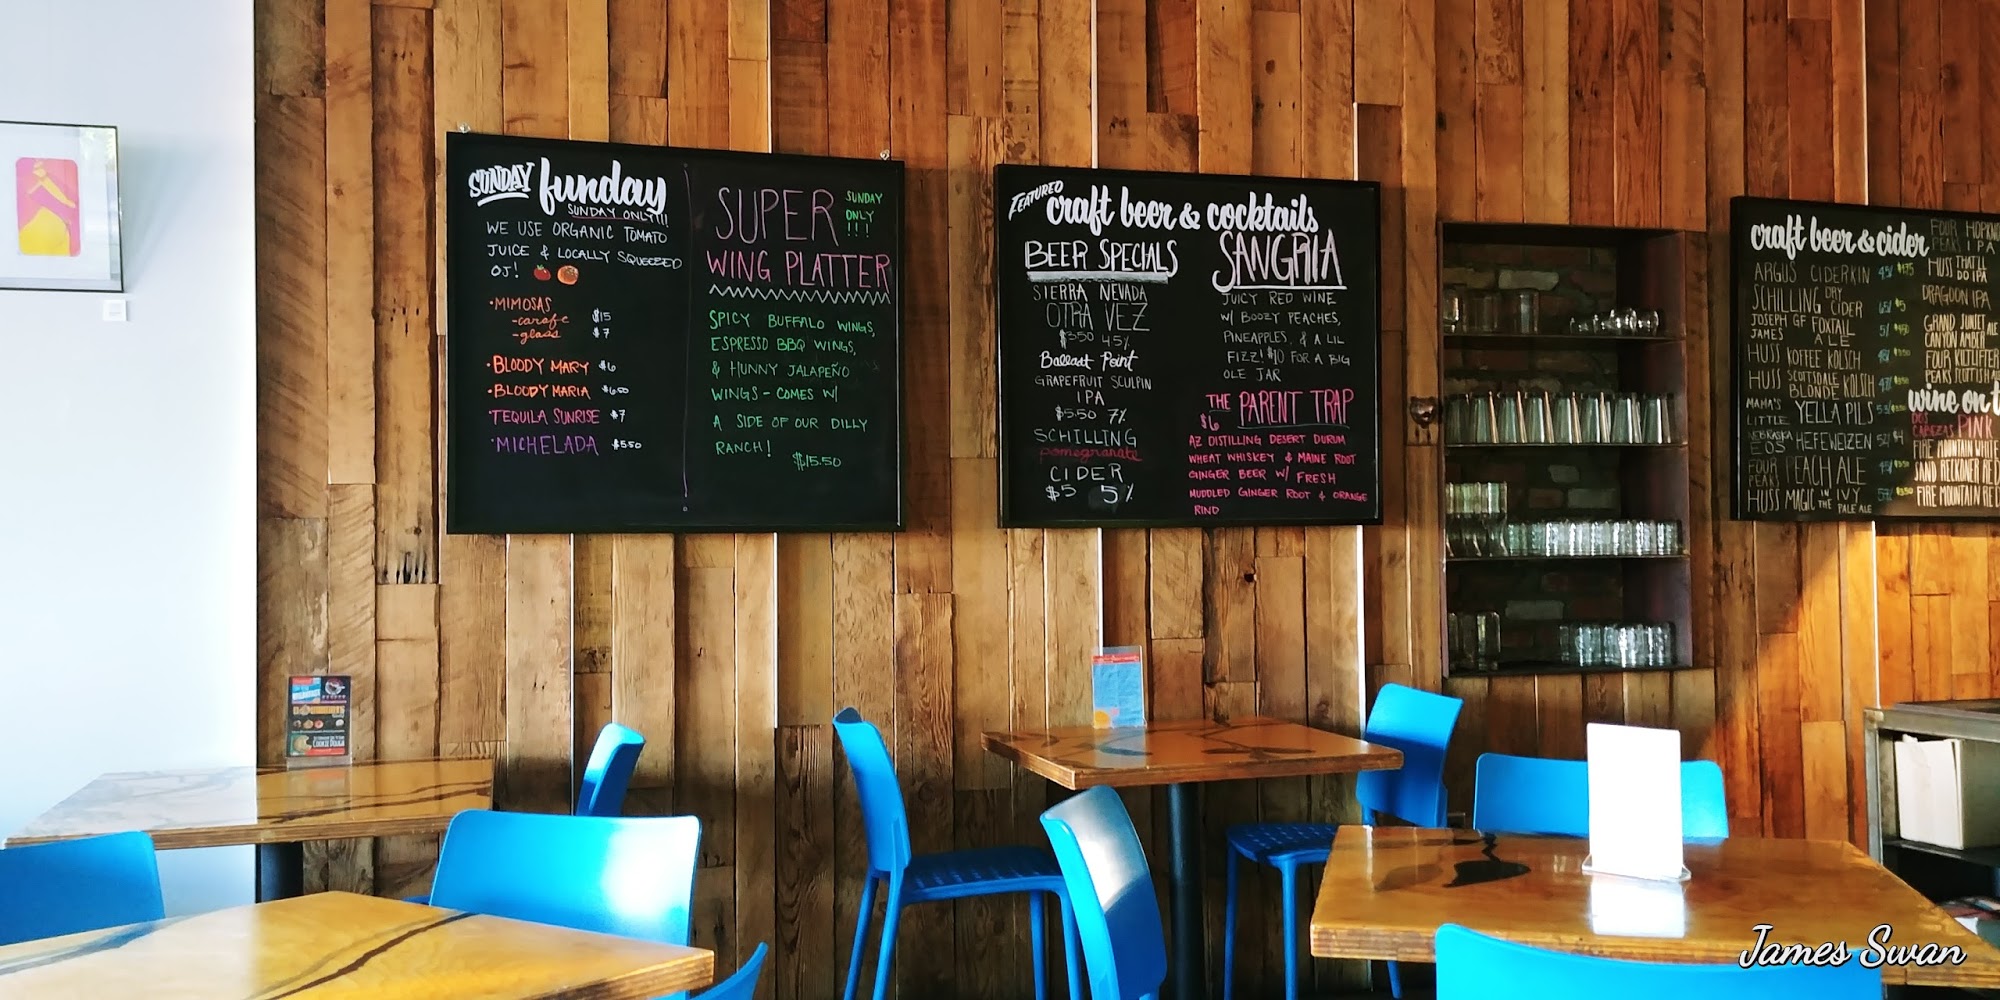 SUNDAY funday
SUNDAY ONLY!!!
WE USE ORGANIC TOMATO
JUICE & LOCALLY SQUEEZED
OJ!
• MIMOSAS
-carafe $15
-glass $7
• BLOODY MARY $6
• BLOODY MARIA $6.50
• TEQUILA SUNRISE $7
• MICHELADA $5.50
SUPER
WING PLATTER
SUNDAY
ONLY
!!!!
SPICY BUFFALO WINGS,
ESPRESSO BBQ WINGS,
& HUNNY JALAPEÑO
WINGS - COMES W/
A SIDE OF OUR DILLY
RANCH!
$15.50
FEATURED craft beer & cocktails
BEER SPECIALS
SIERRA NEVADA
OTRA VEZ
$3.50 4.5%
Ballast Point
GRAPEFRUIT SCULPIN
IPA
$5.50 7%
SCHILLING
pomegranate
CIDER
$5 5%
SANGRIA
JUICY RED WINE
W/ BOOZY PEACHES,
PINEAPPLES, & A LIL
FIZZ! $10 FOR A BIG
OLE JAR
THE PARENT TRAP
$6
AZ DISTILLING DESERT DURUM
WHEAT WHISKEY & MAINE ROOT
GINGER BEER W/ FRESH
MUDDLED GINGER ROOT & ORANGE
RIND
craft beer & cider
ARGUS CIDERKIN
SCHILLING DRY CIDER
JOSEPH JAMES GF FOXTAIL ALE
HUSS KOFFEE KOLSCH
HUSS SCOTTSDALE BLONDE KOLSCH
MAMA'S LITTLE YELLA PILS
HEFEWEIZEN
FOUR PEAKS PEACH ALE
HUSS MAGIC IN THE IVY PALE ALE
FOUR PEAKS
IPA
HUSS THAT'LL DO IPA
DRAGOON IPA
GRAND CANYON AMBER ALE
FOUR PEAKS KILTLIFTER
wine on
DOS CABEZAS PINK
FIRE MOUNTAIN WHITE
SAND RECKONER RED
FIRE MOUNTAIN RED
COOKIE DOUGH
James Swan